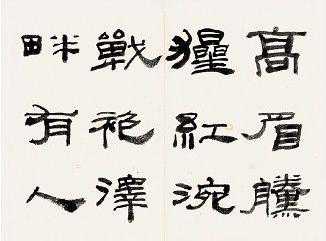 高眉騰
猩紅涴
戰袍澤
畔有人